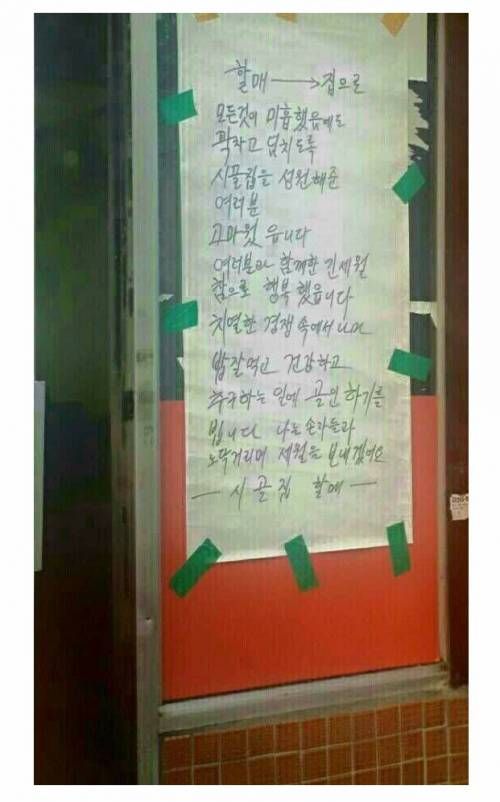 할매 → 집으로
모든것이 미흡했읍에도
꽉차고 넘치도록
시골집을 성원해준
여러분
고마웠읍니다
여러분과 함께한 긴세월
참으로 행복했읍니다
치열한 경쟁속에서
밥잘먹고 건강하고
추구하는 일에 골인 하기를
빕니다 나는 손자들과
노닥거리며 세월을 보내겠어요
— 시골집 할매 —